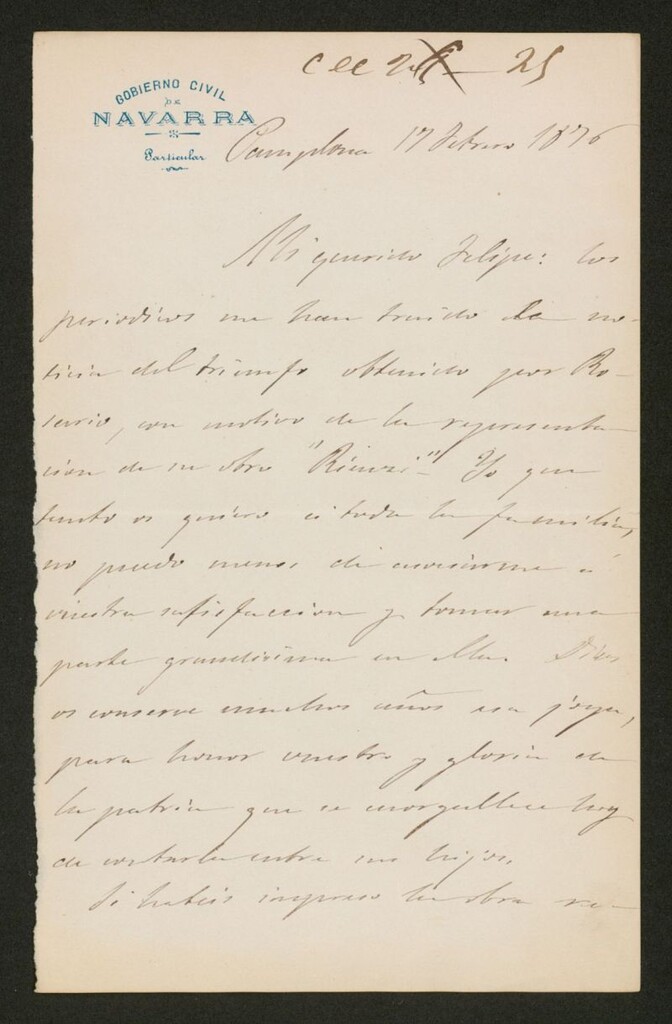 C CC 25 25
GOBIERNO CIVIL
DE
NAVARRA
Particular
Pamplona 17 Febrero 1876
Mi querido Felipe: los
periodicos me han traido la no-
ticia del triunfo obtenido por Ro-
sario, con motivo de la representa-
cion de su obra "Rienzi" Yo que
tanto os quiero á toda la familia,
no puedo menos de asociarme á
vuestra satisfaccion y tomar una
parte grandisima en ella. Dios
os conserve muchos años esa joya,
para honor vuestro y gloria de
la patria que se enorgullece hoy
de contarla entre sus hijos.
Si habeis impreso la obra re-